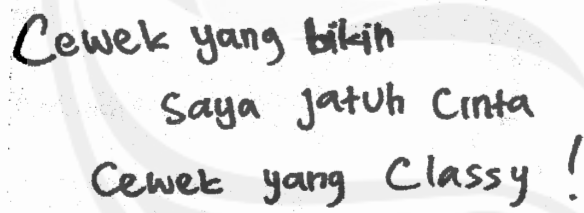 Cewek yang bikin
saya jatuh cinta
cewek yang Classy !